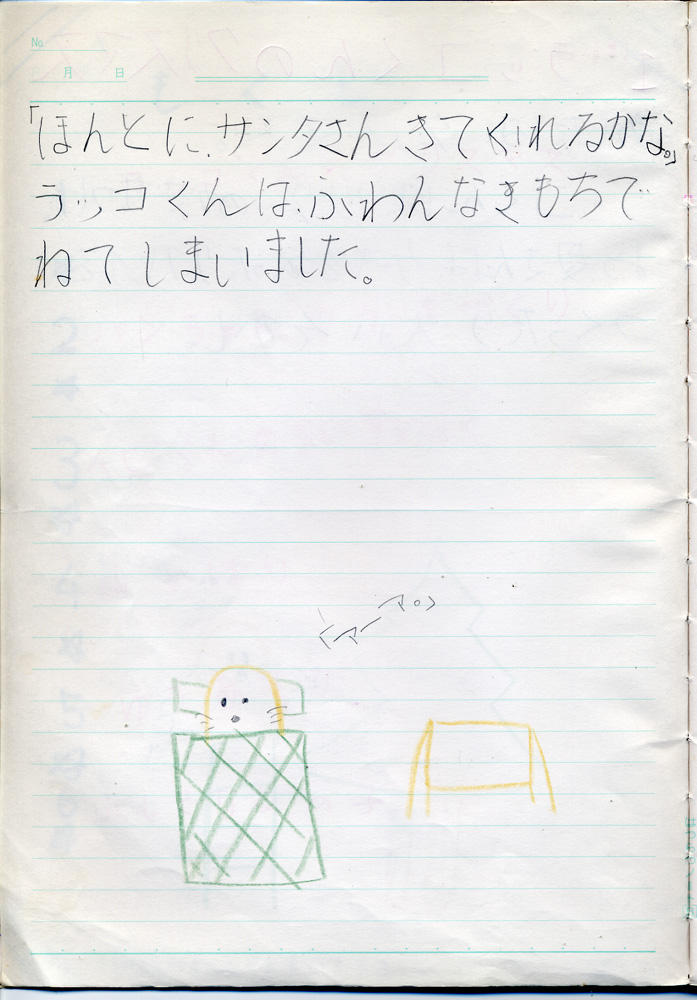 No.
月 日
「ほんとに、サンタさんきてくれるかな。」
ラッコくんは、ふわんなきもちで
ねてしまいました。
「マーマ。」